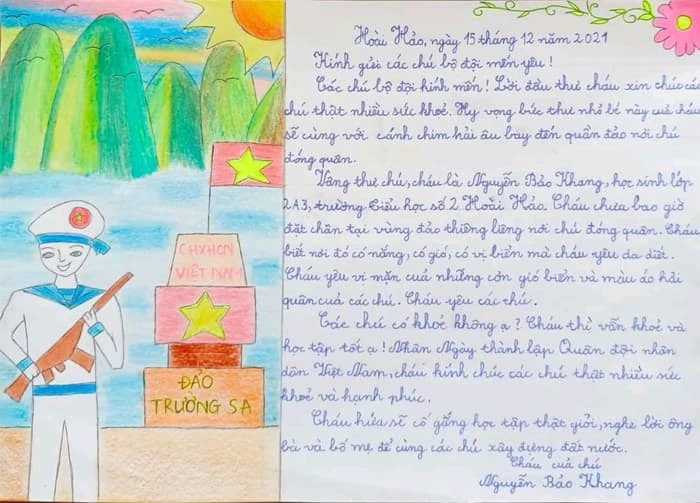 CHXHCN
VIỆT NAM
ĐẢO
TRƯỜNG SA
Hoài Hảo, ngày 15 tháng 12 năm 2021
Kính gửi các chú bộ đội mến yêu!
Các chú bộ đội kính mến! Lời đầu thư cháu xin chúc các
chú thật nhiều sức khoẻ. Hy vọng bức thư nhỏ bé này của cháu
sẽ cùng với cánh chim hải âu bay đến quần đảo nơi chú
đóng quân.
Vâng thư chú, cháu là Nguyễn Bảo Khang, học sinh lớp
2A3, trường Tiểu học số 2 Hoài Hảo. Cháu chưa bao giờ
đặt chân tại vùng đảo thiêng liêng nơi chú đóng quân. Cháu
biết nơi đó có nắng, có gió, có vị biển mà cháu yêu da diết.
Cháu yêu vị mặn của những cơn gió biển và màu áo hải
quân của các chú. Cháu yêu các chú.
Các chú có khoẻ không ạ? Cháu thì vẫn khoẻ và
học tập tốt ạ! Nhân Ngày thành lập Quân đội nhân
dân Việt Nam, cháu kính chúc các chú thật nhiều sức
khoẻ và hạnh phúc.
Cháu hứa sẽ cố gắng học tập thật giỏi, nghe lời ông
bà và bố mẹ để cùng các chú xây dựng đất nước.
Cháu của chú
Nguyễn Bảo Khang